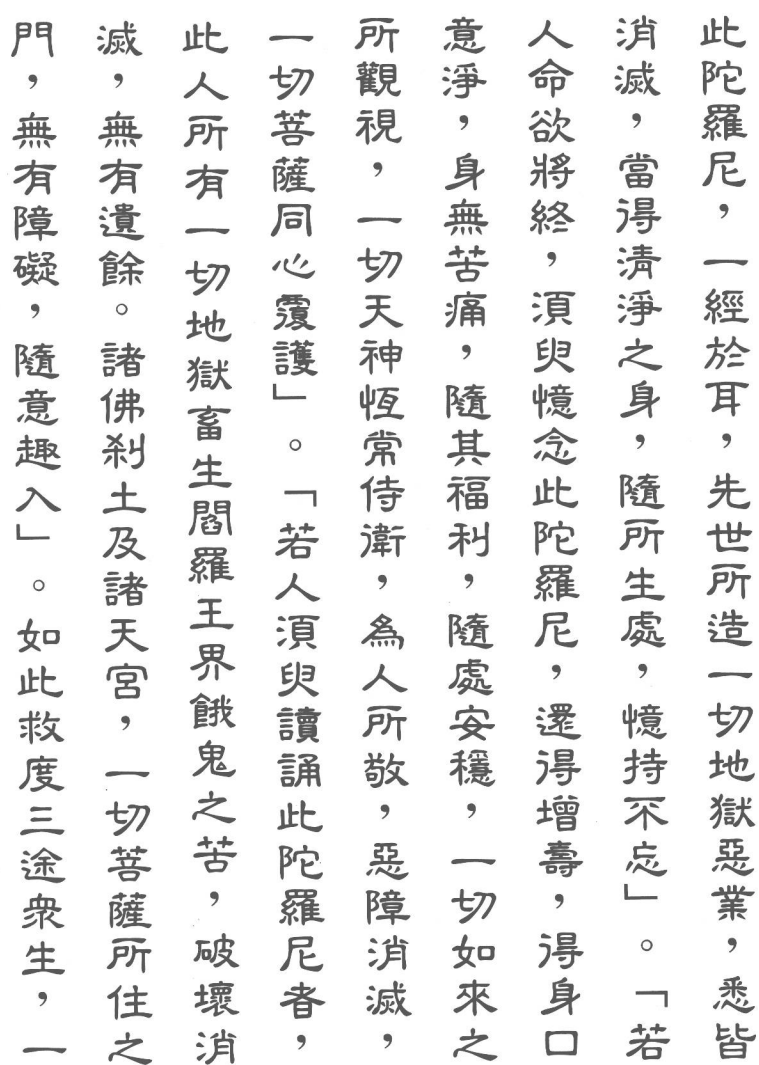 此陀羅尼，一經於耳，先世所造一切地獄惡業，悉皆
消滅，當得清淨之身，隨所生處，憶持不忘」。「若
人命欲將終，須臾憶念此陀羅尼，還得增壽，得身口
意淨，身無苦痛，隨其福利，隨處安穩，一切如來之
所觀視，一切天神恆常侍衛，為人所敬，惡障消滅，
一切菩薩同心覆護」。「若人須臾讀誦此陀羅尼者，
此人所有一切地獄畜生閻羅王界餓鬼之苦，破壞消
滅，無有遺餘。諸佛剎土及諸天宮，一切菩薩所住之
門，無有障礙，隨意趣入」。如此救度三途衆生，一